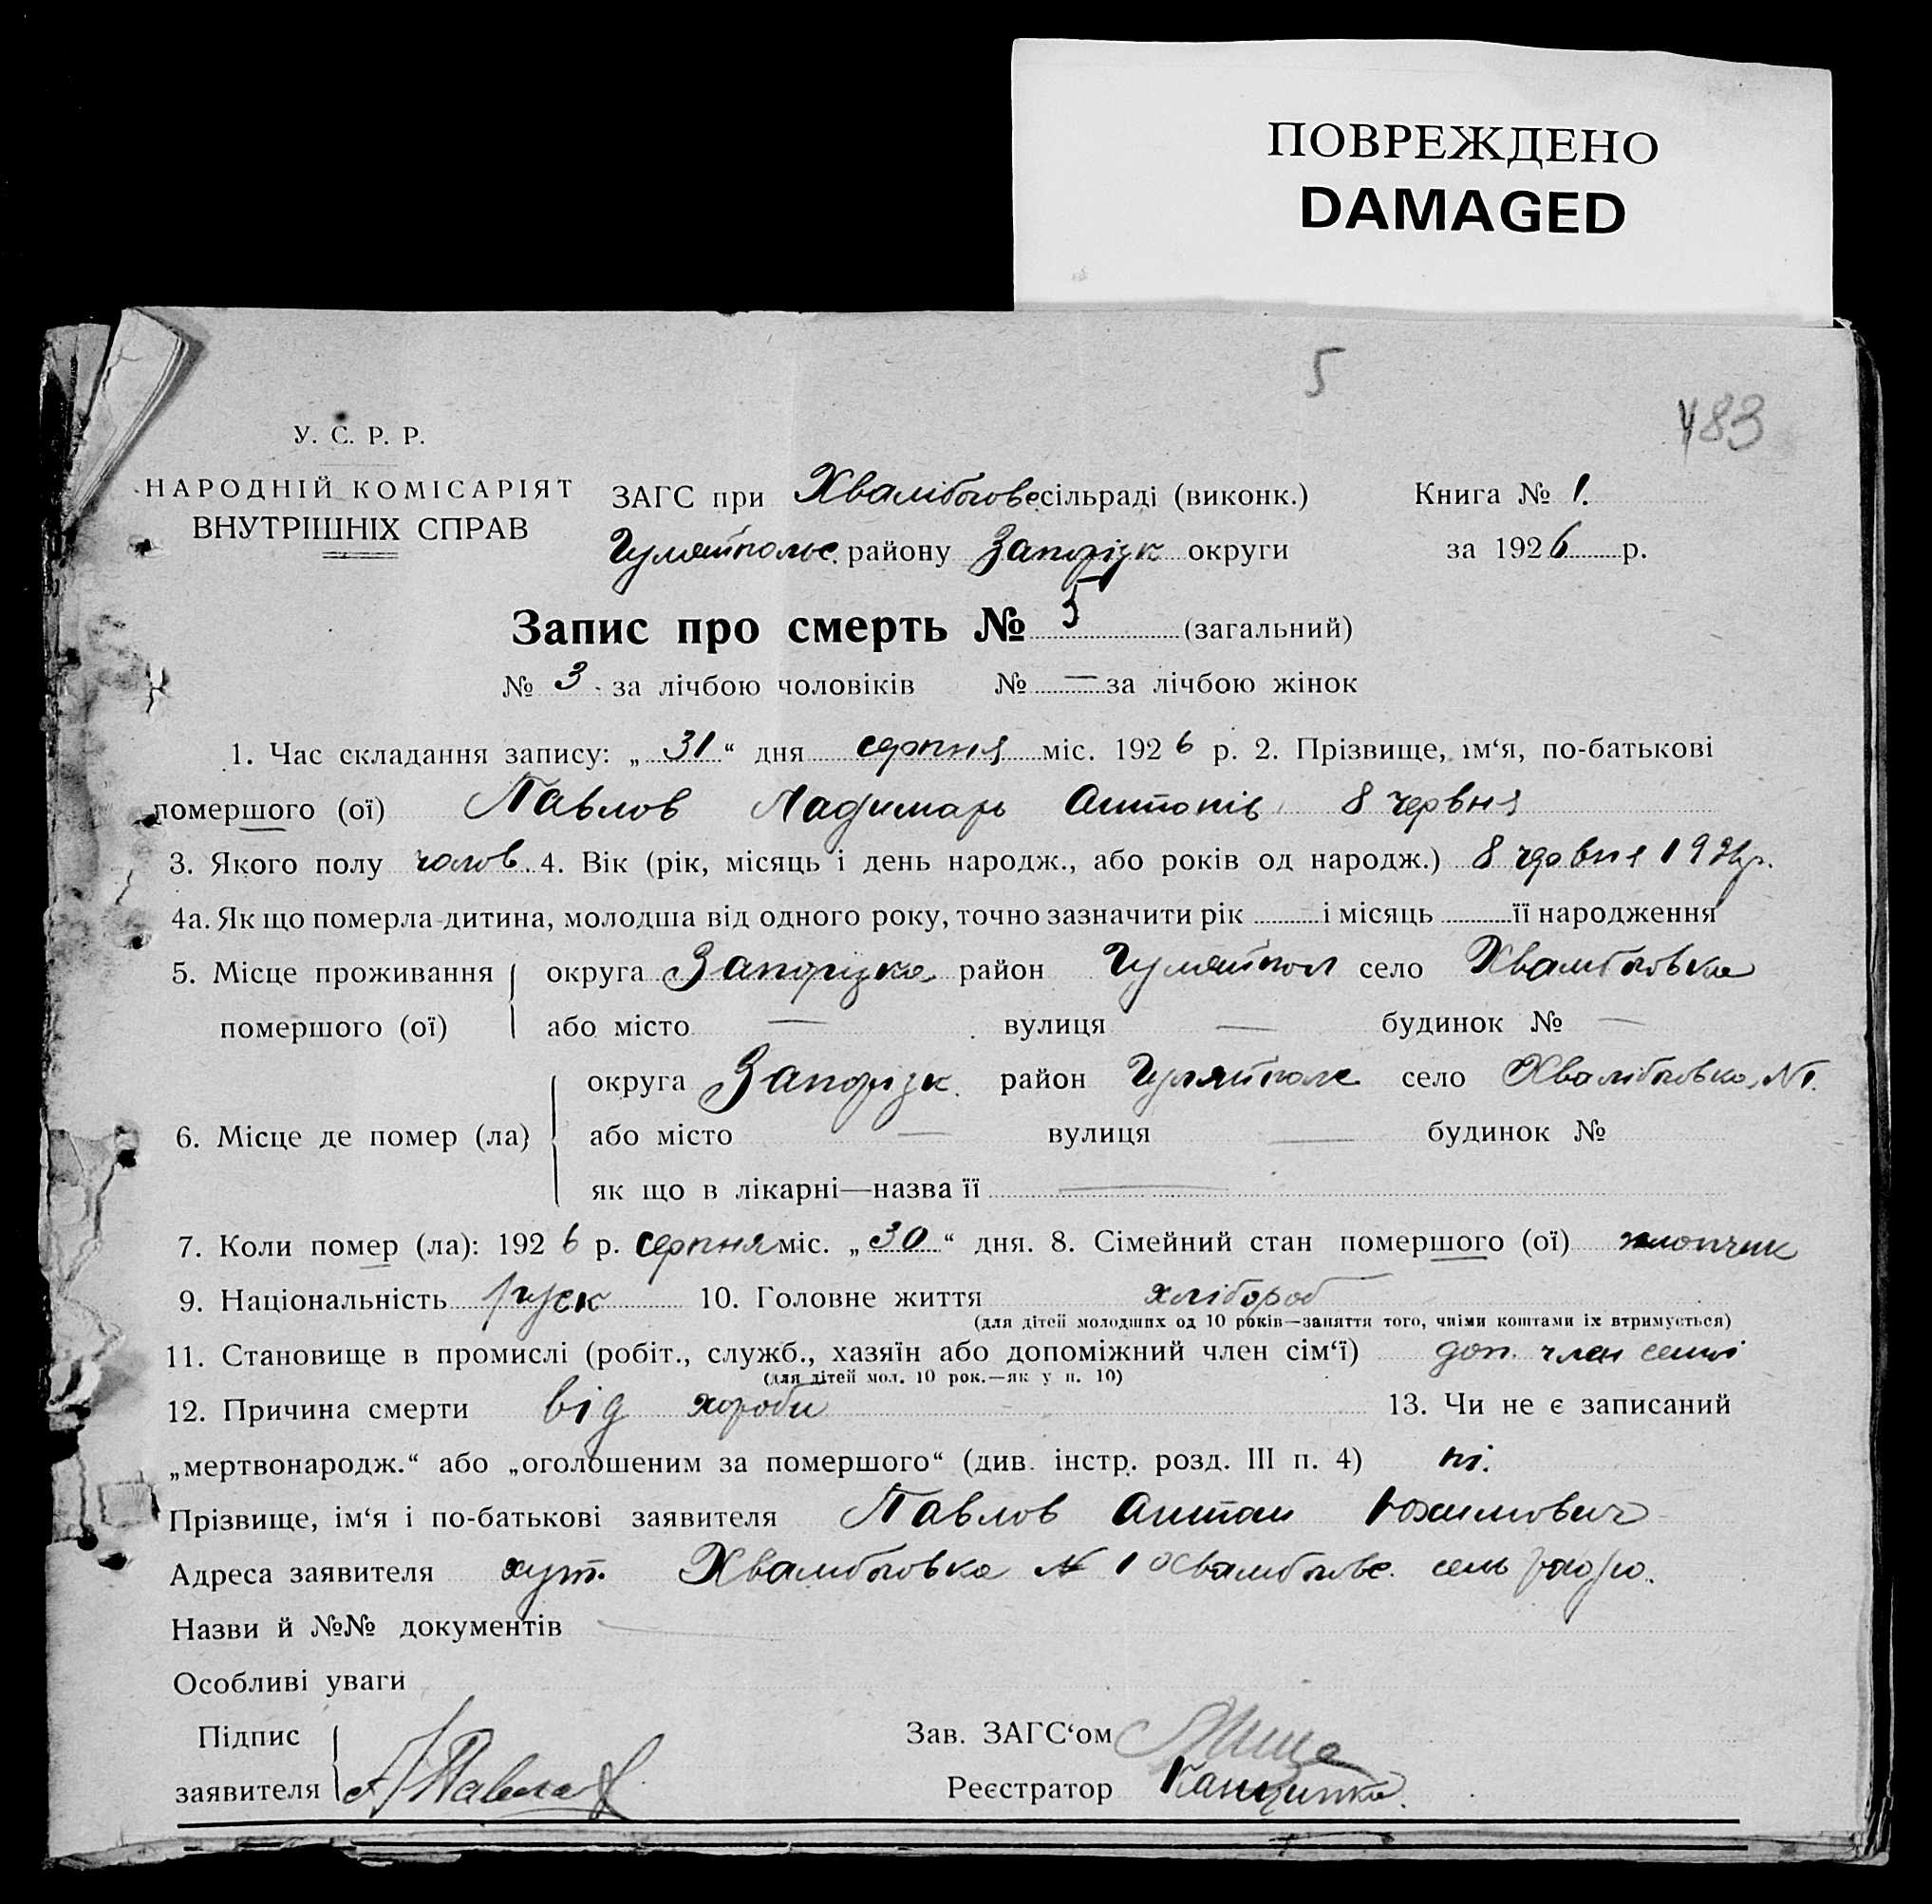 ПОВРЕЖДЕНО
DAMAGED
5
483
У. С. Р. Р.
НАРОДНІЙ КОМІСАРІЯТ
ВНУТРІШНІХ СПРАВ
ЗАГС при сільраді (виконк.)
Книга № 1.
Гуляйпольс. району Запорізк округи
за 1926 р.
Запис про смерть № 5 (загальний)
№ 3 за лічбою чоловіків № — за лічбою жінок
1. Час складання запису: „31“ дня серпня міс. 1926 р. 2. Прізвище, ім‘я, по-батькові
помершого (ої) Павлов Антонів 8 червня
3. Якого полу чолов. 4. Вік (рік, місяць і день народж., або років од народж.) 8 червня
4а. Як що померла дитина, молодша від одного року, точно зазначити рік і місяць її народження
5. Місце проживання округа Запорізка район Гуляйпол село
помершого (ої) або місто — вулиця — будинок № —
округа Запорізк. район Гуляйполе село №1.
6. Місце де помер (ла) або місто — вулиця — будинок №
як що в лікарні—назва її —
7. Коли помер (ла): 1926 р. серпня міс. „30“ дня. 8. Сімейний стан помершого (ої) хлопчик
9. Національність руск 10. Головне життя хлібороб
(для дітей молодших од 10 років—заняття того, чиїми коштами їх втримується)
11. Становище в промислі (робіт., служб., хазяїн або допоміжний член сім‘ї) доп. член семьї
(для дітей мол. 10 рок.—як у п. 10)
12. Причина смерти від хороби 13. Чи не є записаний
„мертвонародж.“ або „оголошеним за помершого“ (див. інстр. розд. III п. 4) ні.
Прізвище, ім‘я і по-батькові заявителя Павлов Антон Юхимович
Адреса заявителя хут. № 1
Назви й №№ документів
Особливі уваги
Підпис
Зав. ЗАГС‘ом
заявителя А Павлов
Реєстратор